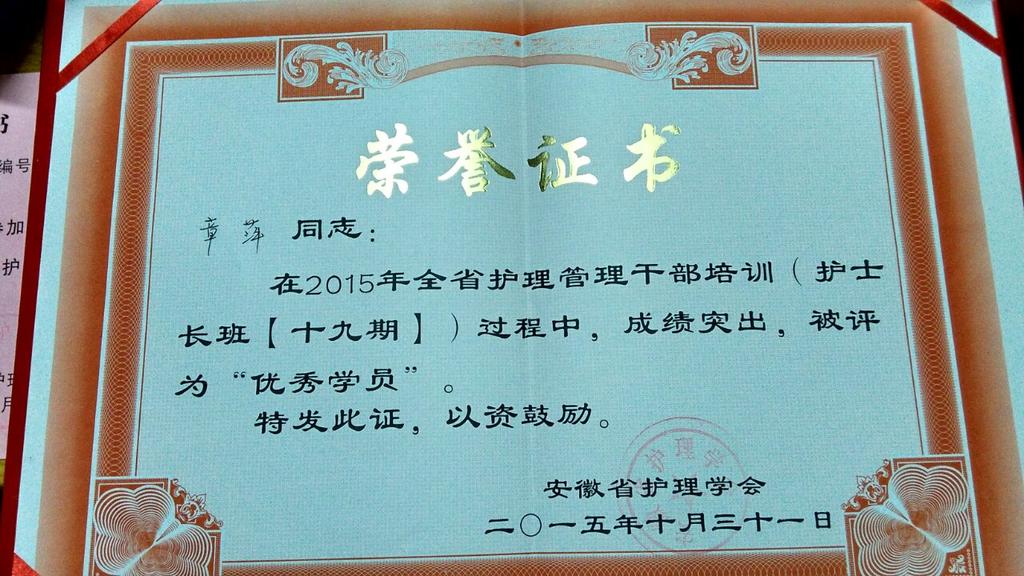 荣誉证书
章萍 同志：
在2015年全省护理管理干部培训（护士
长班【十九期】）过程中，成绩突出，被评
为“优秀学员”。
特发此证，以资鼓励。
护理学
安徽省护理学会
二〇一五年十月三十一日
书
编号
参加
护
月